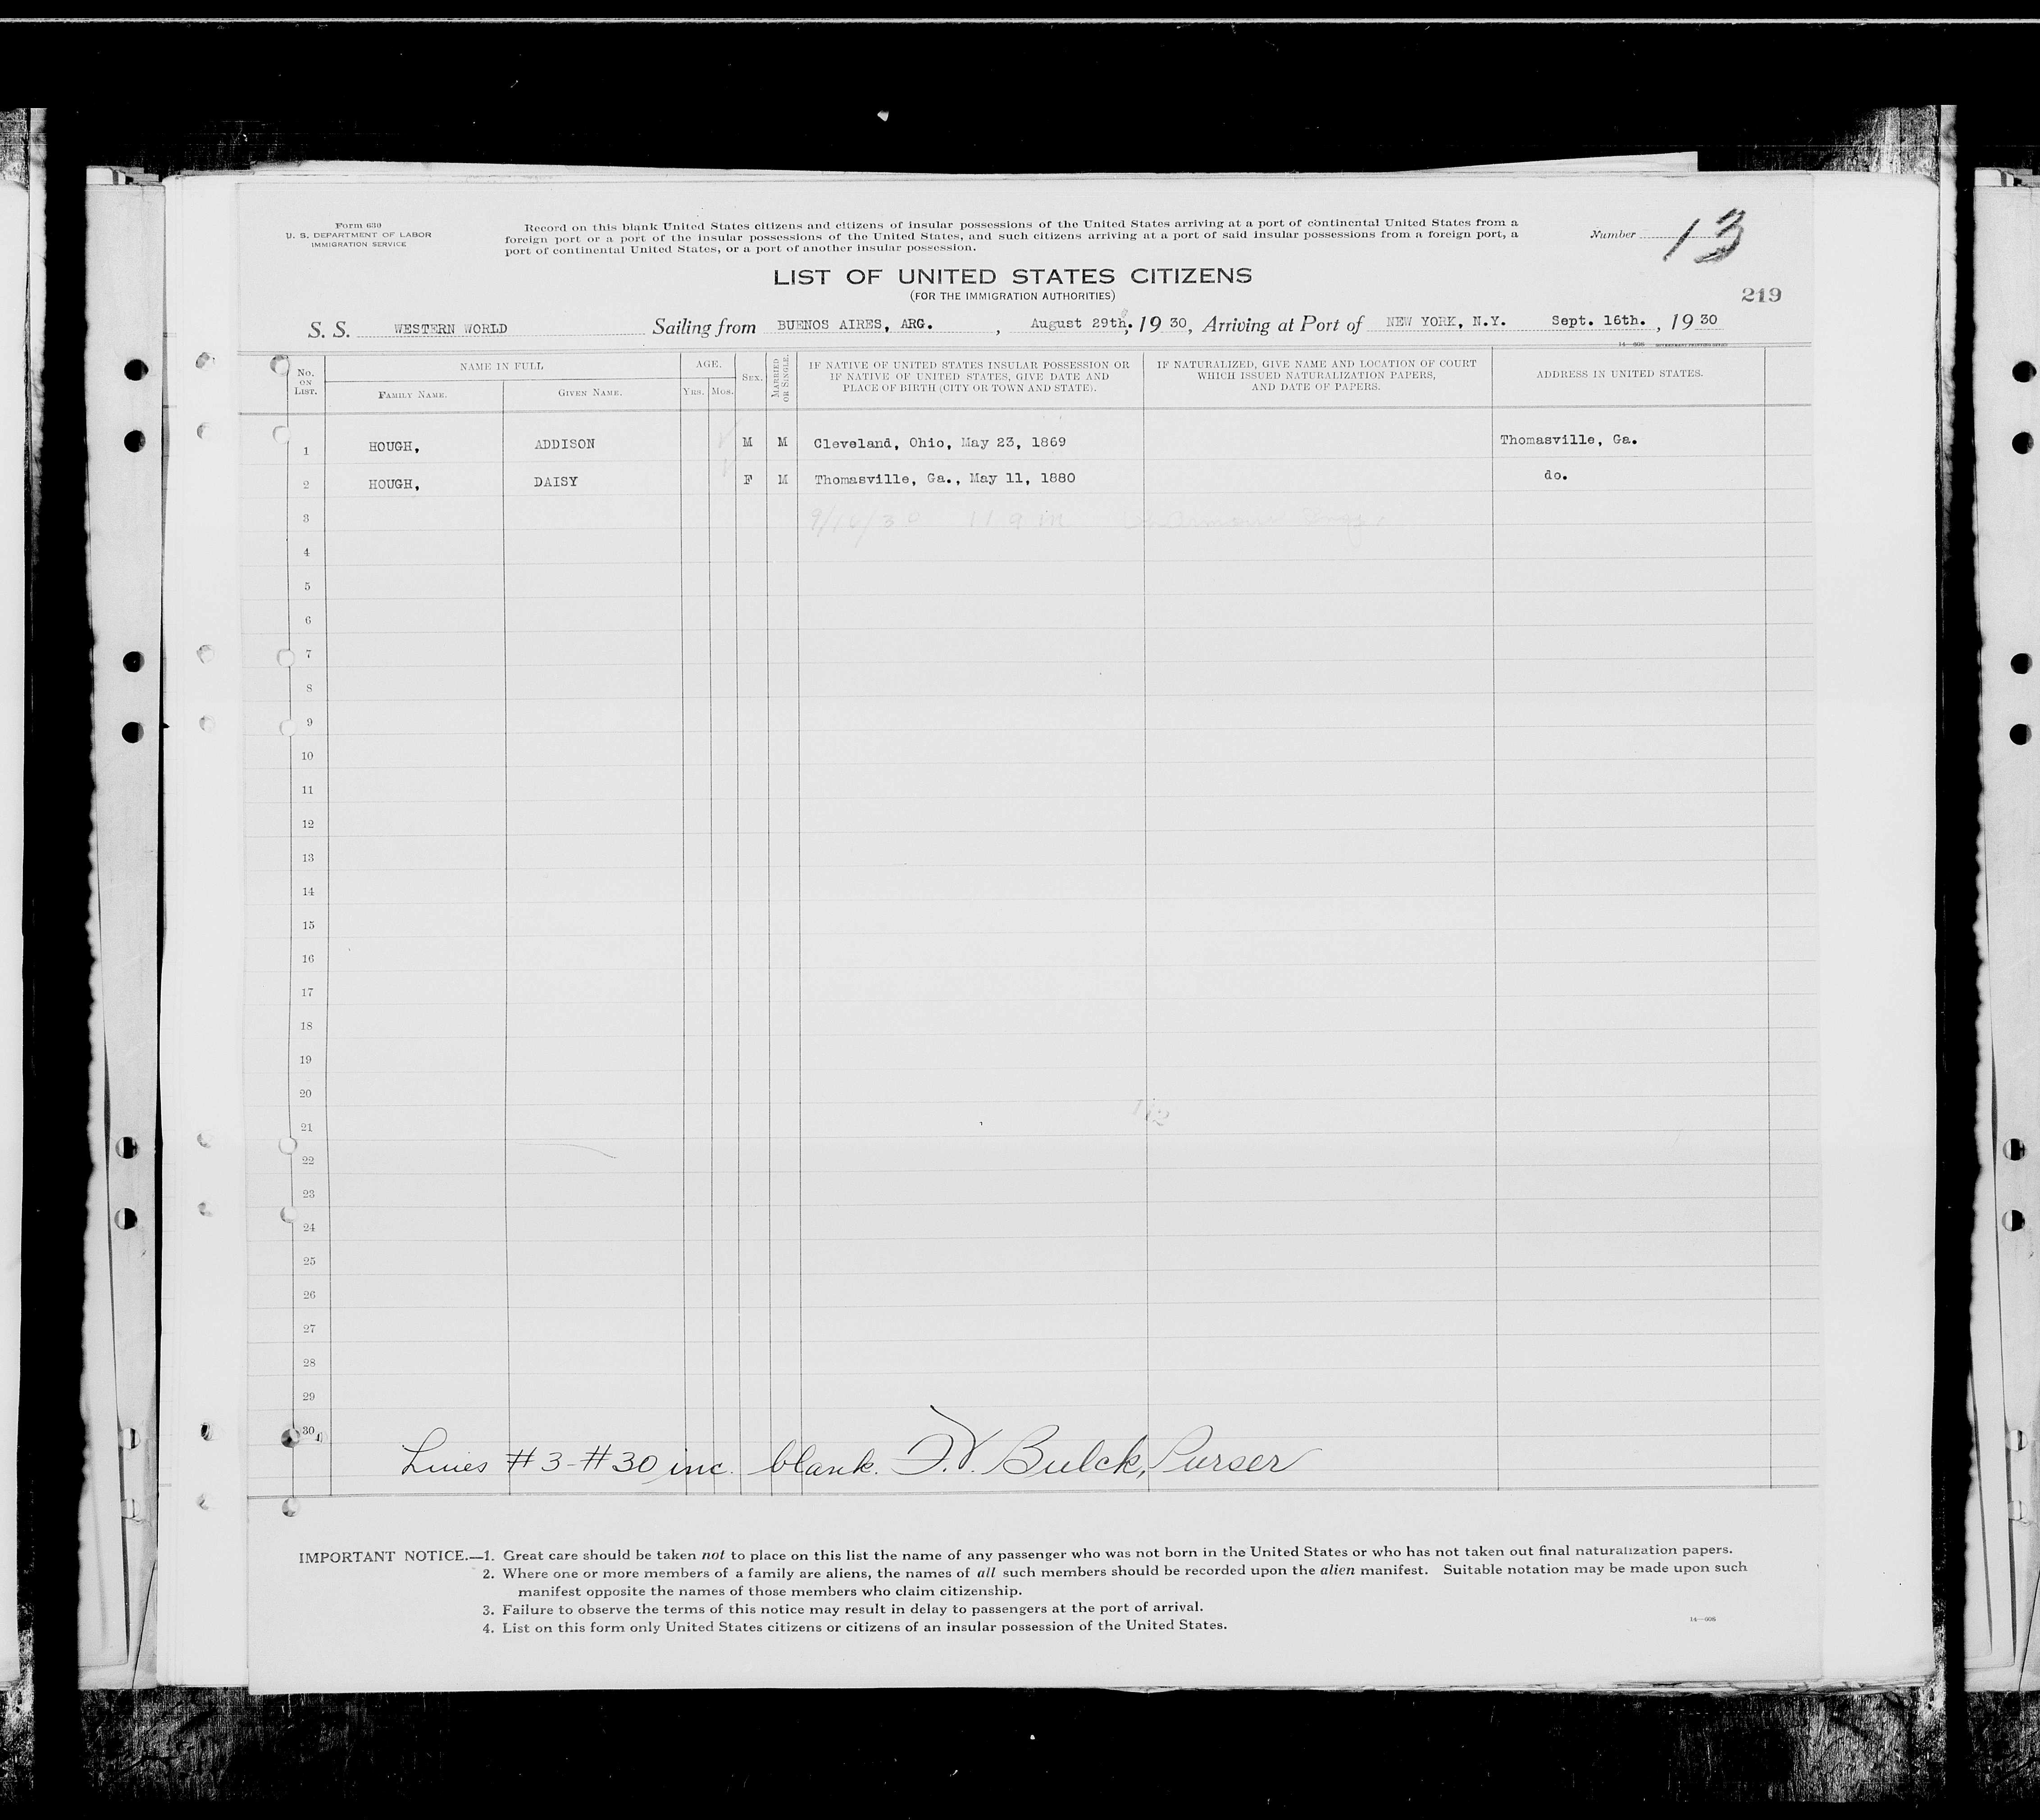 Form 630
U. S. DEPARTMENT OF LABOR
IMMIGRATION SERVICE
Record on this blank United States citizens and citizens of insular possessions of the United States arriving at a port of continental United States from a
foreign port or a port of the insular possessions of the United States, and such citizens arriving at a port of said insular possessions from a foreign port, a
port of continental United States, or a port of another insular possession.
Number 13
LIST OF UNITED STATES CITIZENS
(FOR THE IMMIGRATION AUTHORITIES)
219
S. S. WESTERN WORLD Sailing from BUENOS AIRES, ARG. , August 29th, 19 30, Arriving at Port of NEW YORK, N.Y. Sept. 16th. , 19 30
14—608 GOVERNMENT PRINTING OFFICE
No. ON LIST.
NAME IN FULL
FAMILY NAME.
GIVEN NAME.
AGE.
YRS. MOS.
SEX.
MARRIED OR SINGLE.
IF NATIVE OF UNITED STATES INSULAR POSSESSION OR
IF NATIVE OF UNITED STATES, GIVE DATE AND
PLACE OF BIRTH (CITY OR TOWN AND STATE).
IF NATURALIZED, GIVE NAME AND LOCATION OF COURT
WHICH ISSUED NATURALIZATION PAPERS,
AND DATE OF PAPERS.
ADDRESS IN UNITED STATES.
1 HOUGH, ADDISON M M Cleveland, Ohio, May 23, 1869 Thomasville, Ga.
2 HOUGH, DAISY F M Thomasville, Ga., May 11, 1880 do.
3 9/16/30 11 a m
4
5
6
7
8
9
10
11
12
13
14
15
16
17
18
19
20
21
22
23
24
25
26
27
28
29
30
Lines #3-#30 inc. blank. F.V. Bulck, Purser
IMPORTANT NOTICE.—1. Great care should be taken not to place on this list the name of any passenger who was not born in the United States or who has not taken out final naturalization papers.
2. Where one or more members of a family are aliens, the names of all such members should be recorded upon the alien manifest. Suitable notation may be made upon such
manifest opposite the names of those members who claim citizenship.
3. Failure to observe the terms of this notice may result in delay to passengers at the port of arrival.
4. List on this form only United States citizens or citizens of an insular possession of the United States.
14—608